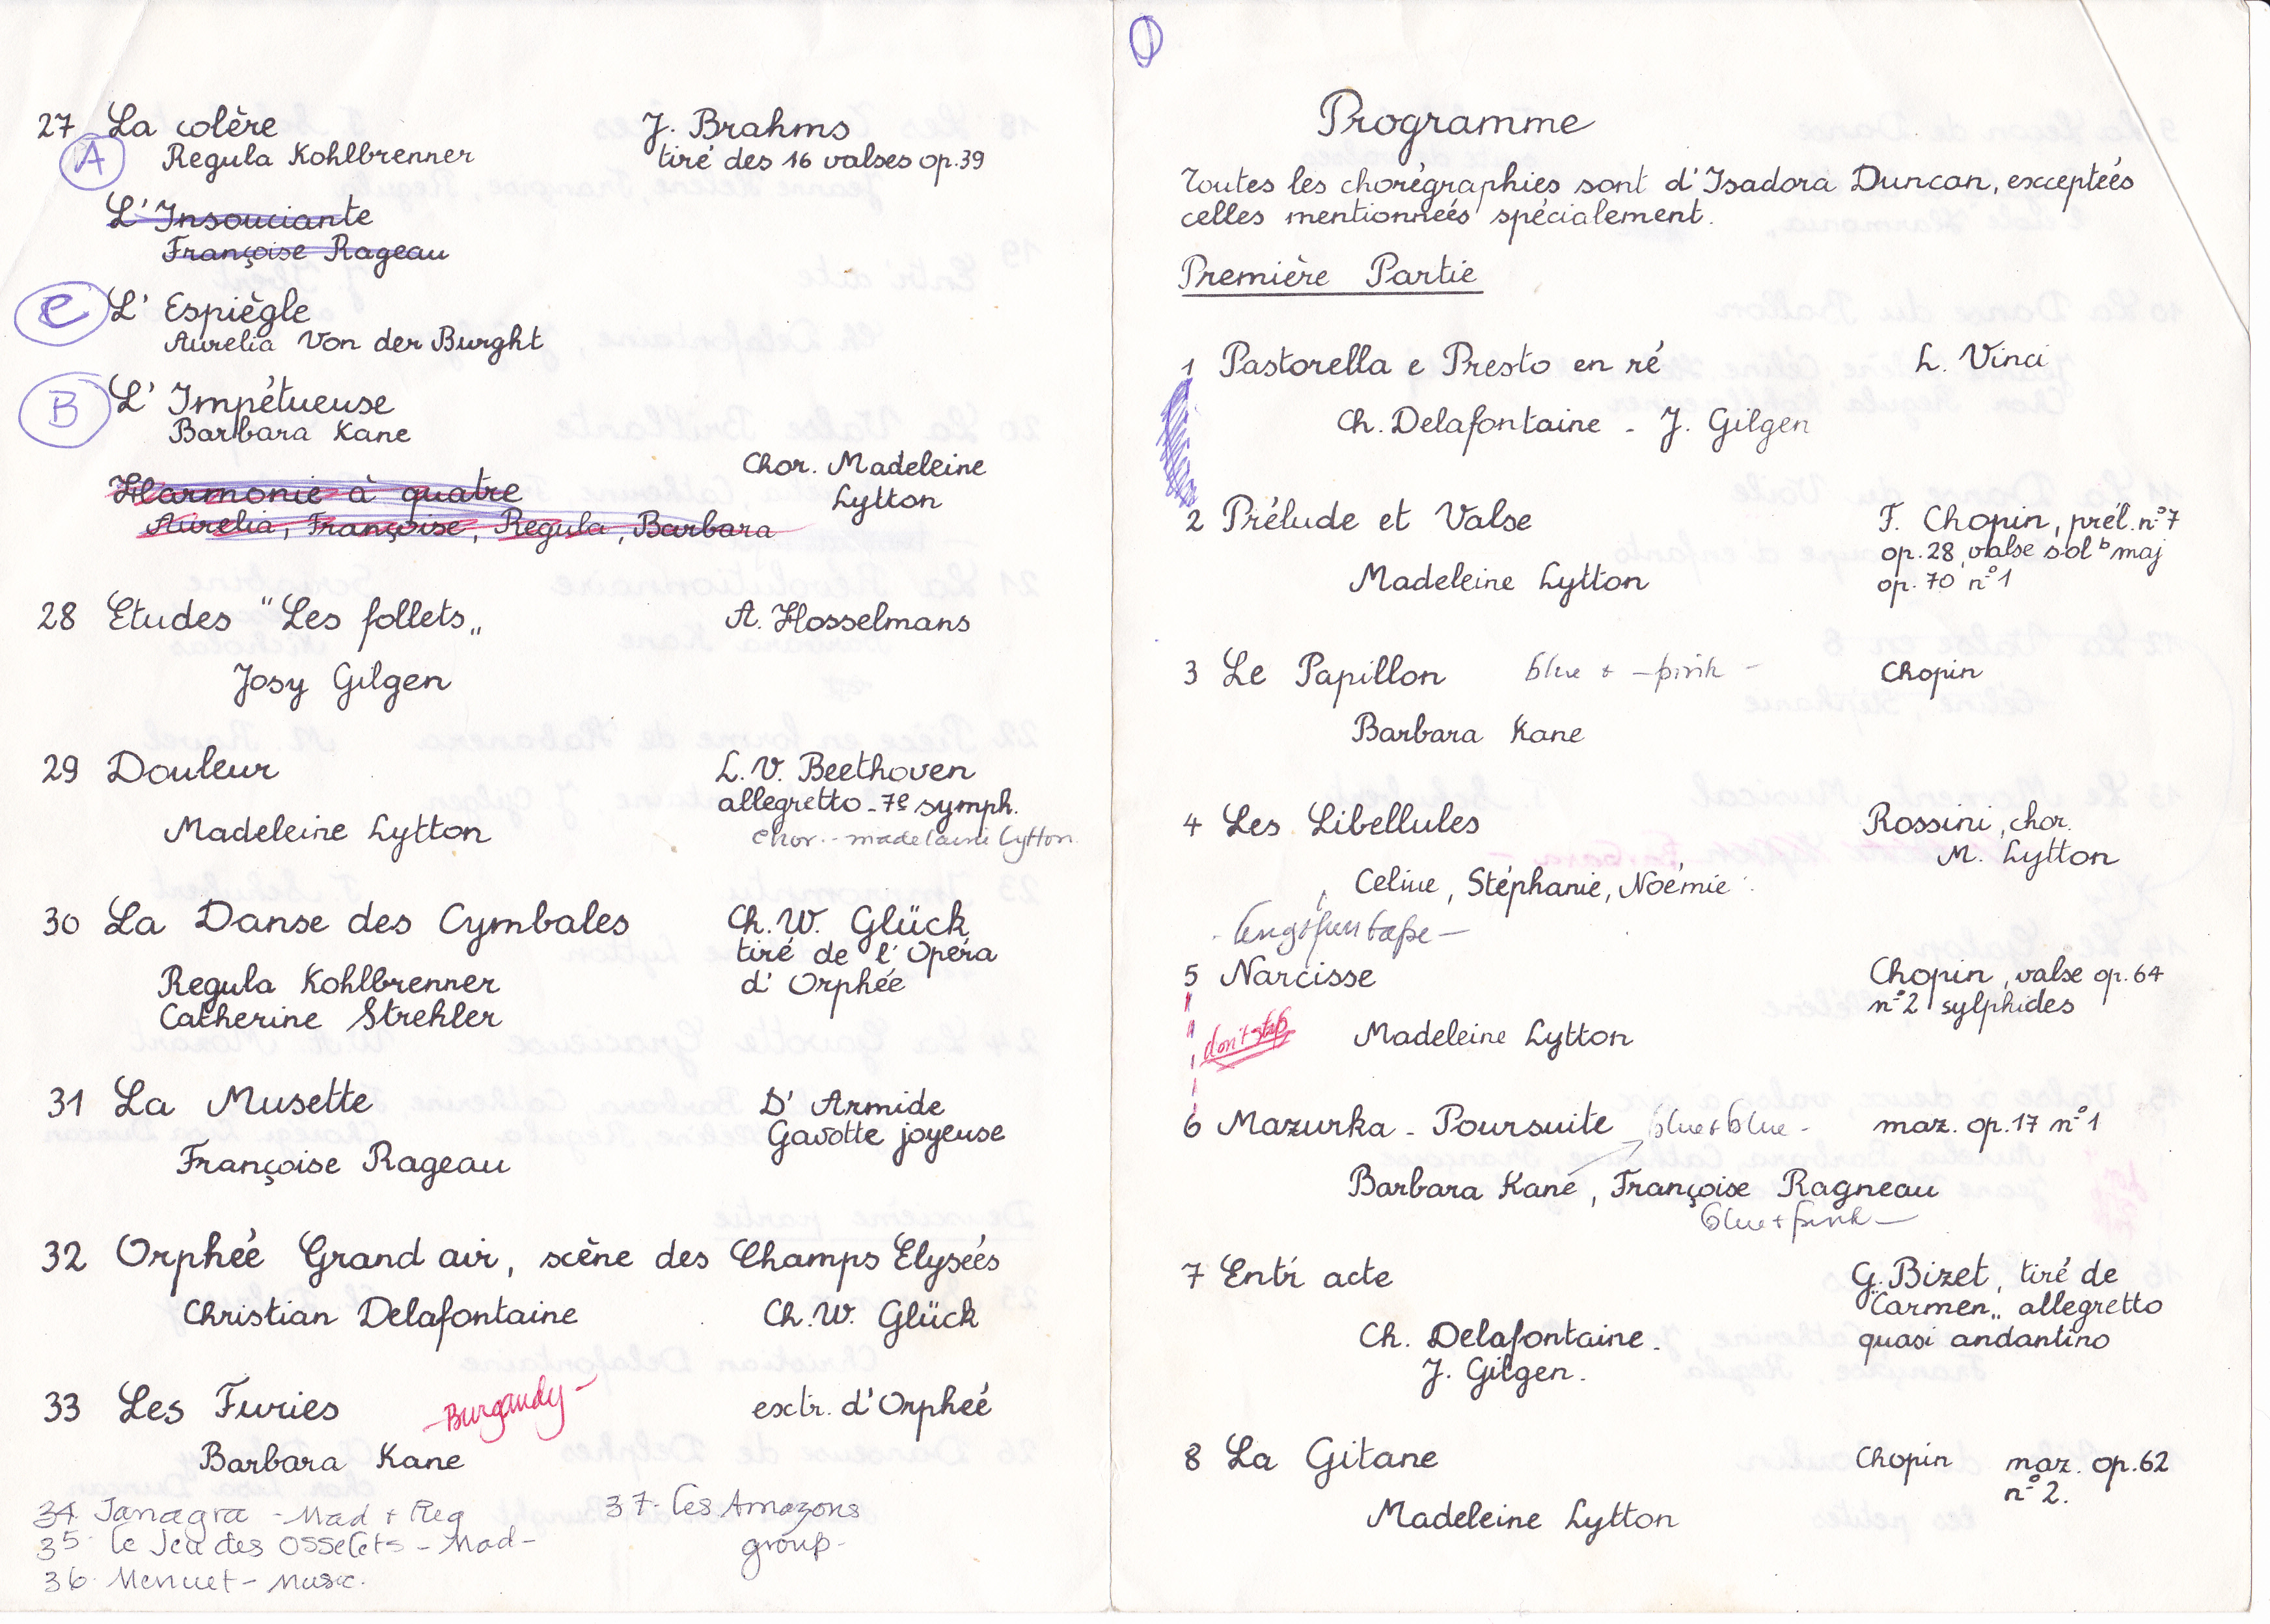 27 La colère J. Brahms
A Regula Kohlbrenner tiré des 16 valses op.39
L'Insouciante
Françoise Rageau
C L'Espiègle
Aurelia Von der Burght
B L'Impétueuse
Barbara Kane
Chor. Madeleine
Lytton
Harmonie à quatre
Aurelia, Françoise, Regula, Barbara
28 Etudes "Les follets„ A. Hosselmans
Josy Gilgen
29 Douleur L.V. Beethoven
allegretto - 7e symph.
Madeleine Lytton chor. - madelaine Lytton
30 La Danse des Cymbales Ch.W. Glück
tiré de l'Opéra
Regula Kohlbrenner d'Orphée
Catherine Strehler
31 La Musette D'Armide
Gavotte joyeuse
Françoise Rageau
32 Orphée Grand air, scène des Champs Elysées
Christian Delafontaine Ch.W. Glück
33 Les Furies -Burgandy- extr. d'Orphée
Barbara Kane
34. Tanagra - Mad + Reg 37- les Amazons
35. le Jeu des Osselets - Mad - group-
36. Menuet - music.
Programme
Toutes les chorégraphies sont d'Isadora Duncan, exceptées
celles mentionneés spécialement.
Première Partie
1 Pastorella e Presto en ré L. Vinci
Ch. Delafontaine - J. Gilgen
2 Prélude et Valse F. Chopin, prél. n°7
op.28, valse sol b maj
Madeleine Lytton op. 70 n°1
3 Le Papillon blue + - pink - Chopin
Barbara Kane
4 Les Libellules Rossini, chor.
M. Lytton
Celine, Stéphanie, Noémie
tape -
5 Narcisse Chopin, valse op.64
n°2 sylphides
don't stop Madeleine Lytton
6 Mazurka - Poursuite blue + blue - maz. op.17 n°1
Barbara Kane, Françoise Ragneau
blue + pink -
7 Entr'acte G. Bizet, tiré de
"Carmen„ allegretto
Ch. Delafontaine - quasi andantino
J. Gilgen.
8 La Gitane Chopin maz. op.62
n°2.
Madeleine Lytton